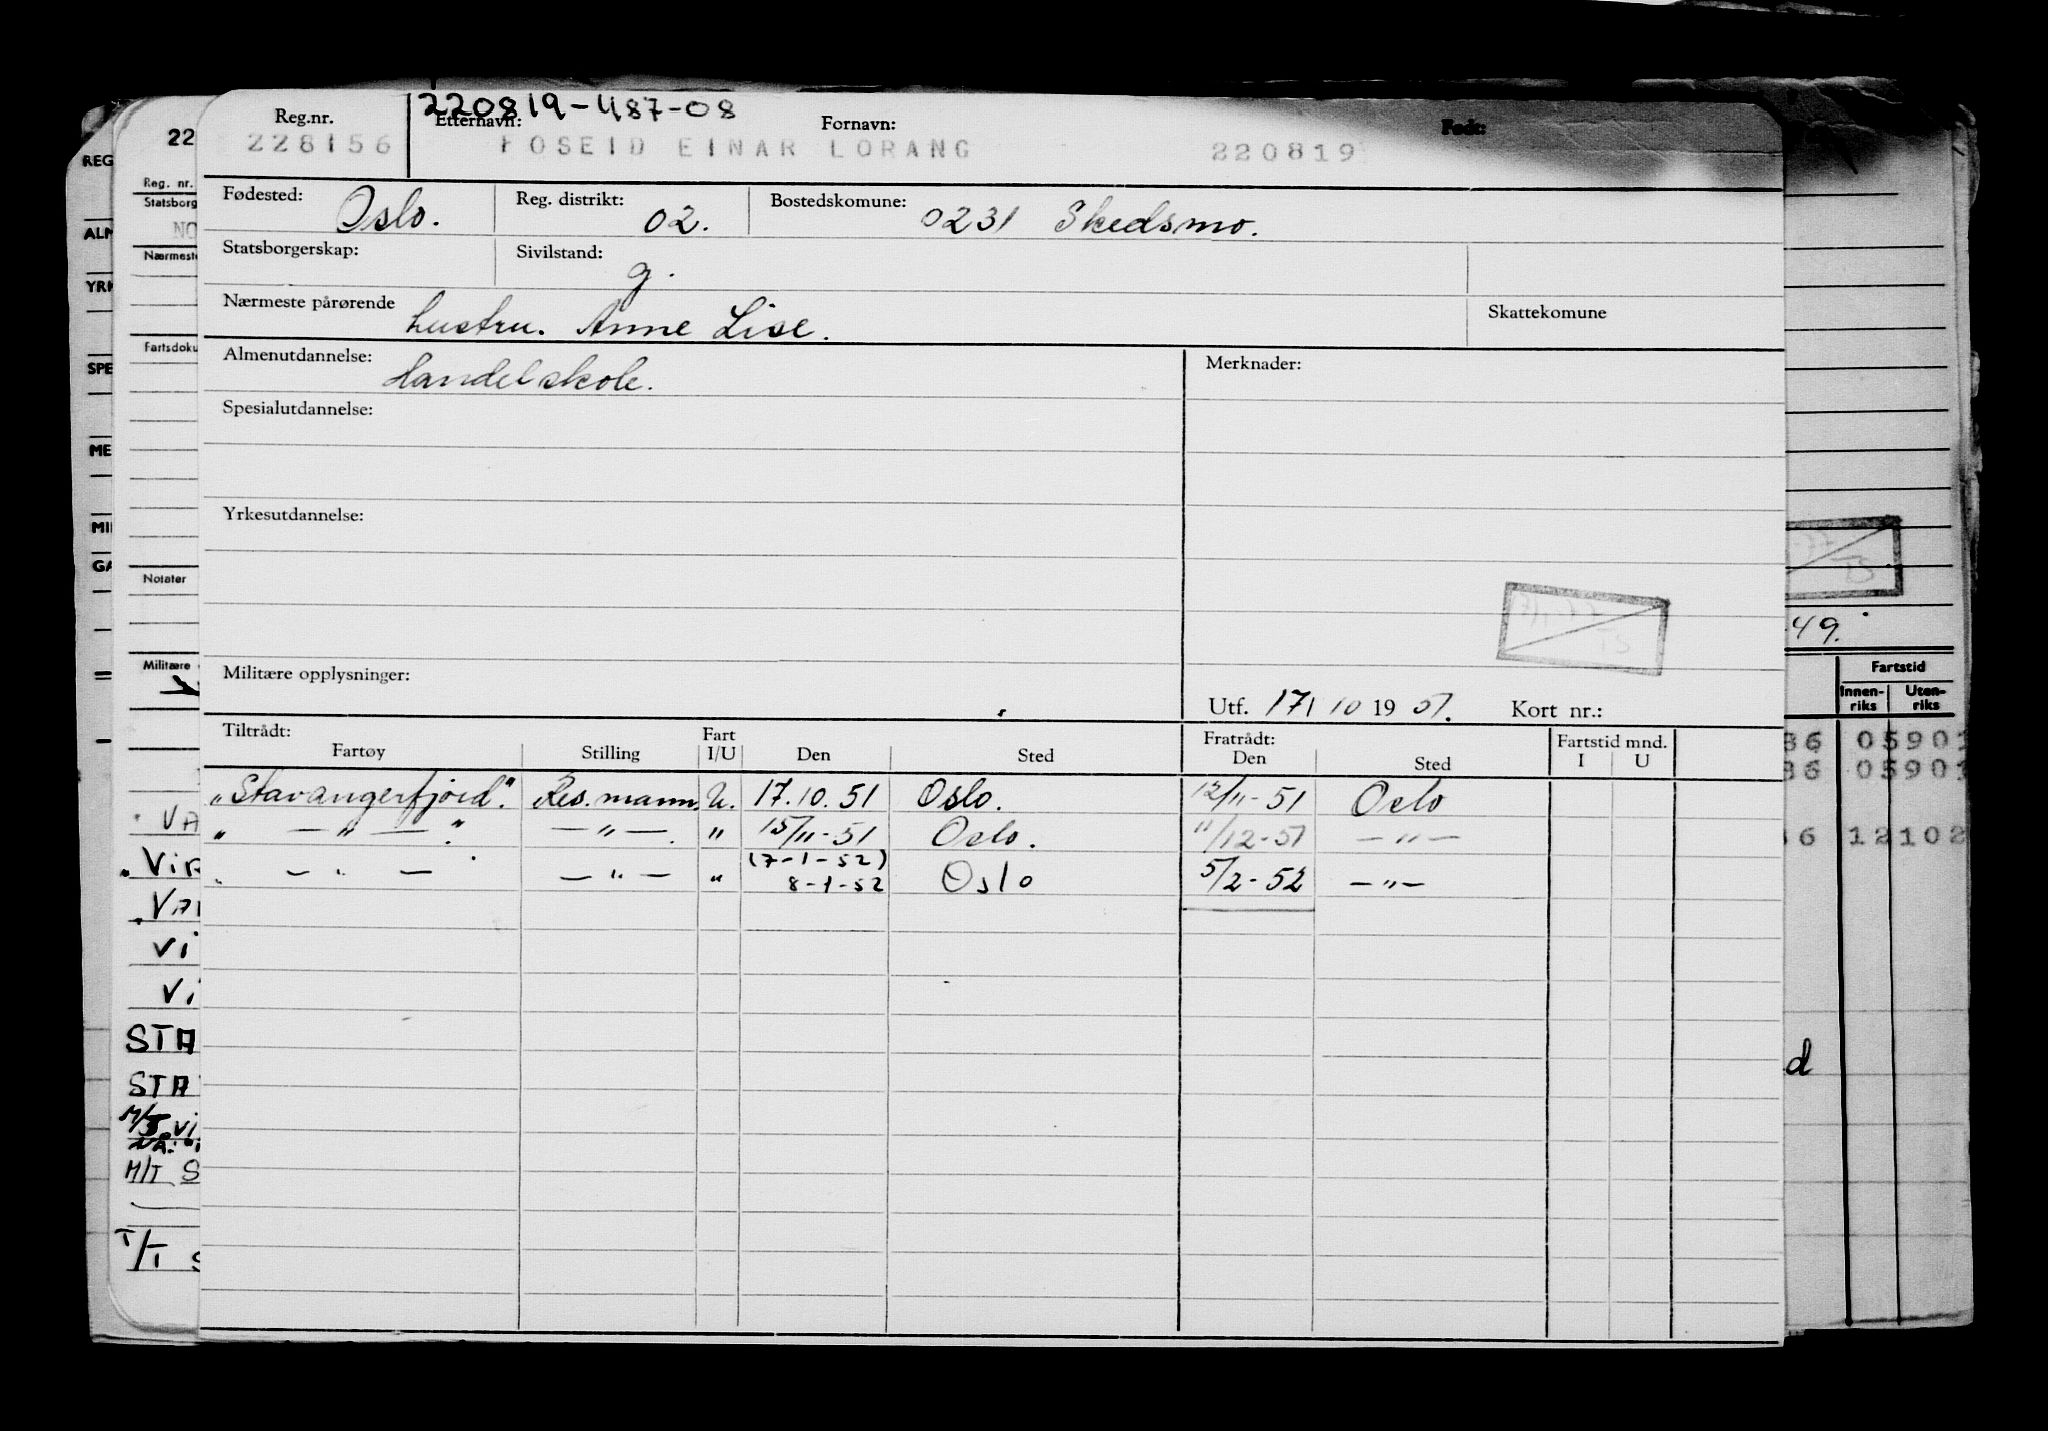 220819-487-08
Reg.nr. Etternavn: Fornavn: Født:
228156 FOSEID EINAR LORANG 220819
Fødested: Oslo. Reg. distrikt: 02. Bostedskomune: 0231 Skedsmo.
Statsborgerskap: Sivilstand: g.
Nærmeste pårørende hustru. Anne Lise. Skattekomune
Almenutdannelse: Handelskole. Merknader:
Spesialutdannelse:
Yrkesutdannelse:
Militære opplysninger:
Utf. 17/10 1951. Kort nr.:
Tiltrådt: Fratrådt: Fartstid mnd.
Fartøy Stilling Fart I/U Den Sted Den Sted I U
"Stavangerfjord". Res. mann. U. 17.10.51 Oslo. 12/11-51 Oslo
" — " — ". — " —. " 15/11-51 Oslo. 11/12-51 — " —
" — " — — " — " (7-1-52) 8-1-52 Oslo 5/2-52 — " —
22
REG
Reg. nr.
Statsborg
NO
ALM
Nærmeste
YRK
Fartsdoku
SPE
ME
MI
GA
Notater
Militære
VA
"VIR
"VAN
VI
VI
STA
STA
M/S VI
M/T S
T/T S
49.
Fartstid
Innen-riks Uten-riks
36 05901
36 05901
6 12102
d